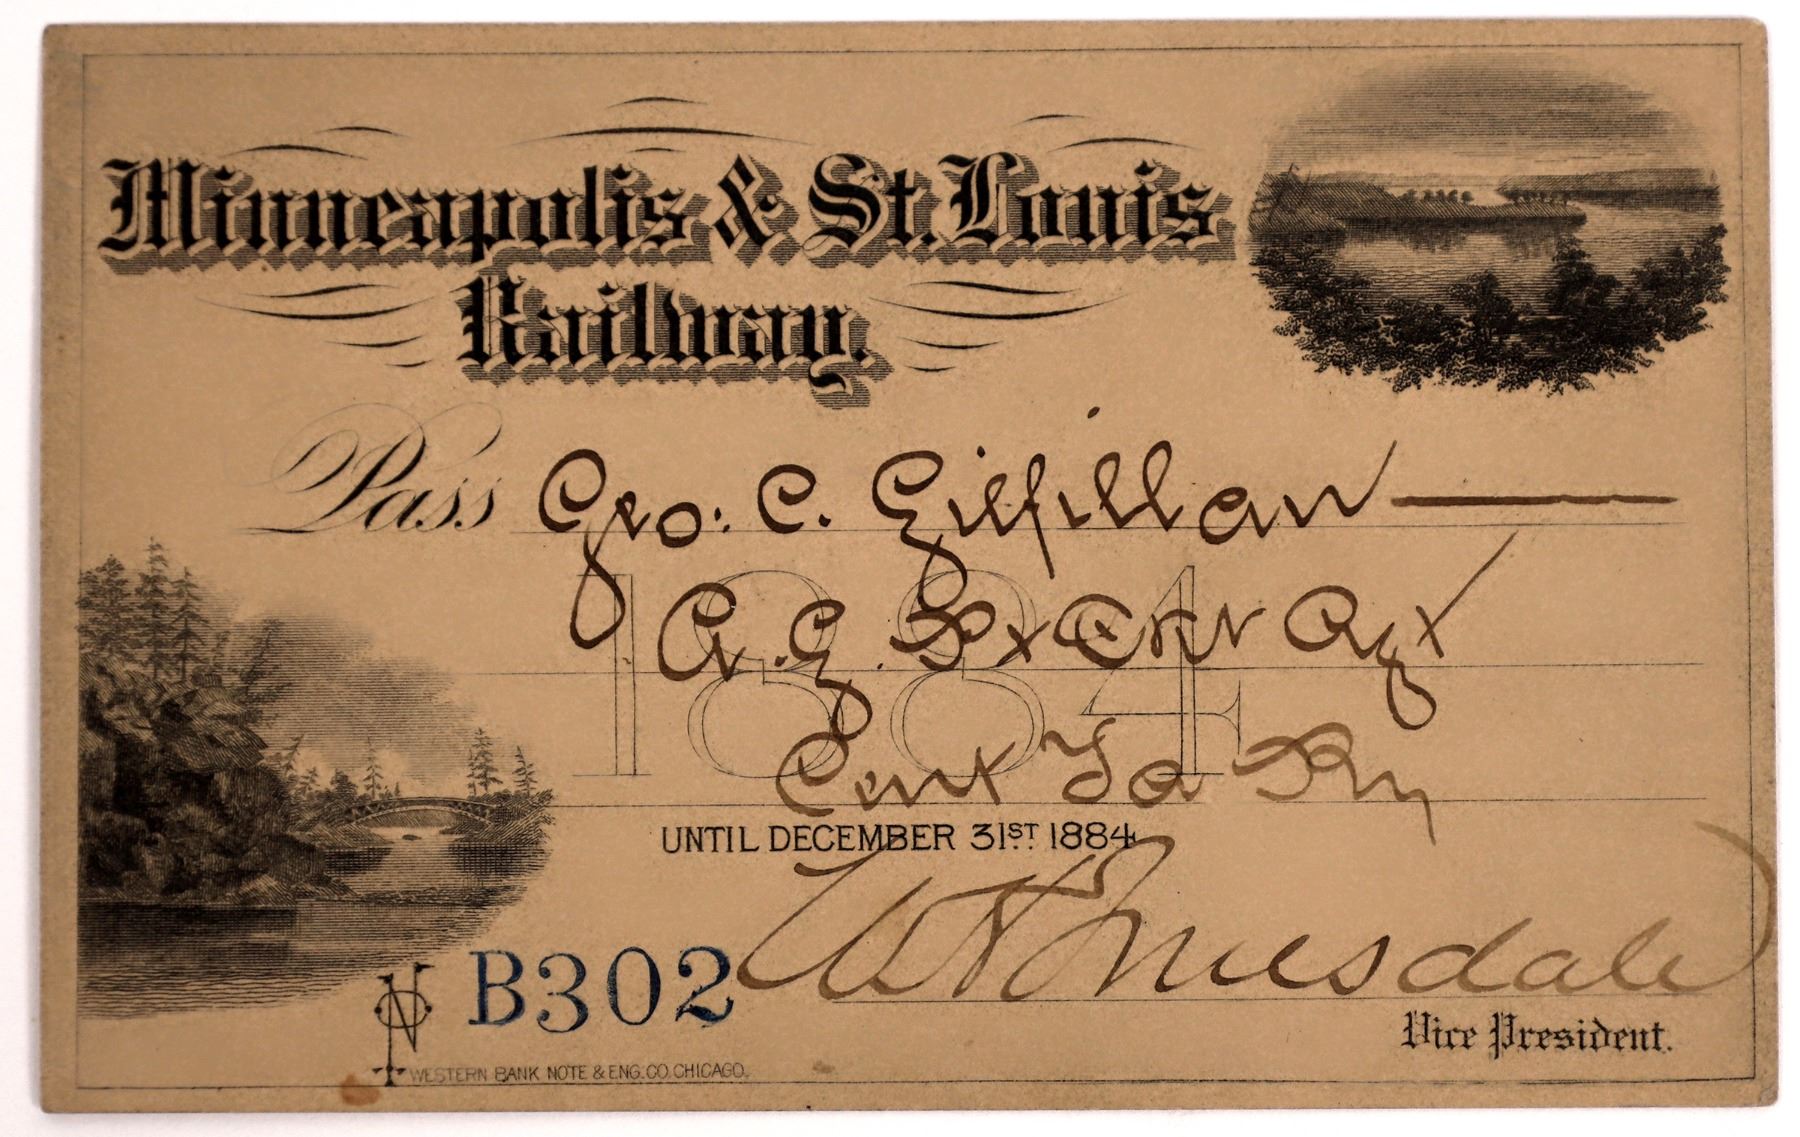 Minneapolis & St. Louis
Railway.
Pass Geo: C. Gilfillan
A. G. Fx & Tkt Agt
Cent Ia Ry
1884
UNTIL DECEMBER 31ST 1884
W H Truesdale
Vice President.
No B302
WESTERN BANK NOTE & ENG. CO. CHICAGO.